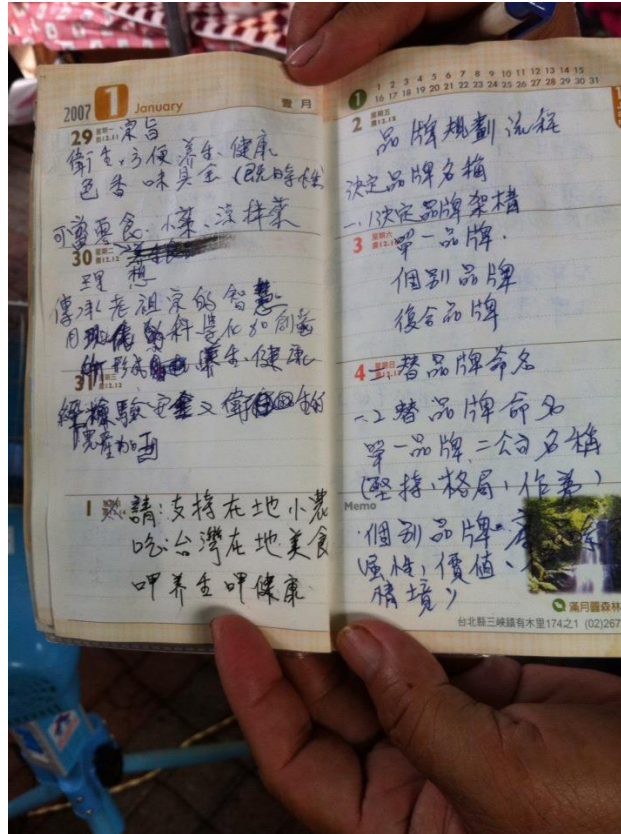 2007 1 January 壹月
29 星期一 農12.11 宗旨
衛生、方便養生、健康
色香味具全(既時性)
可當零食、小菜、涼拌菜
30 星期二 農12.12
理想
傳承老祖宗的智慧
養生、健康
31 星期三 農12.13
經檢驗安全又衛生的
農產加
1
請:支持在地小農
吃台灣在地美食
呷养生呷健康
1 1 2 3 4 5 6 7 8 9 10 11 12 13 14 15
16 17 18 19 20 21 22 23 24 25 26 27 28 29 30 31
2 星期五
品牌規劃流程
決定品牌名稱
一、1決定品牌架構
3 星期六 單一品牌.
個別品牌
復合品牌
4 二、替品牌命名
一、2替品牌命名
單一品牌、二公司名稱
(堅持、格局、作為)
Memo
個別品牌
屬性、價值、
情境)
滿月圓森林
台北縣三峽鎮有木里174之1 (02)267